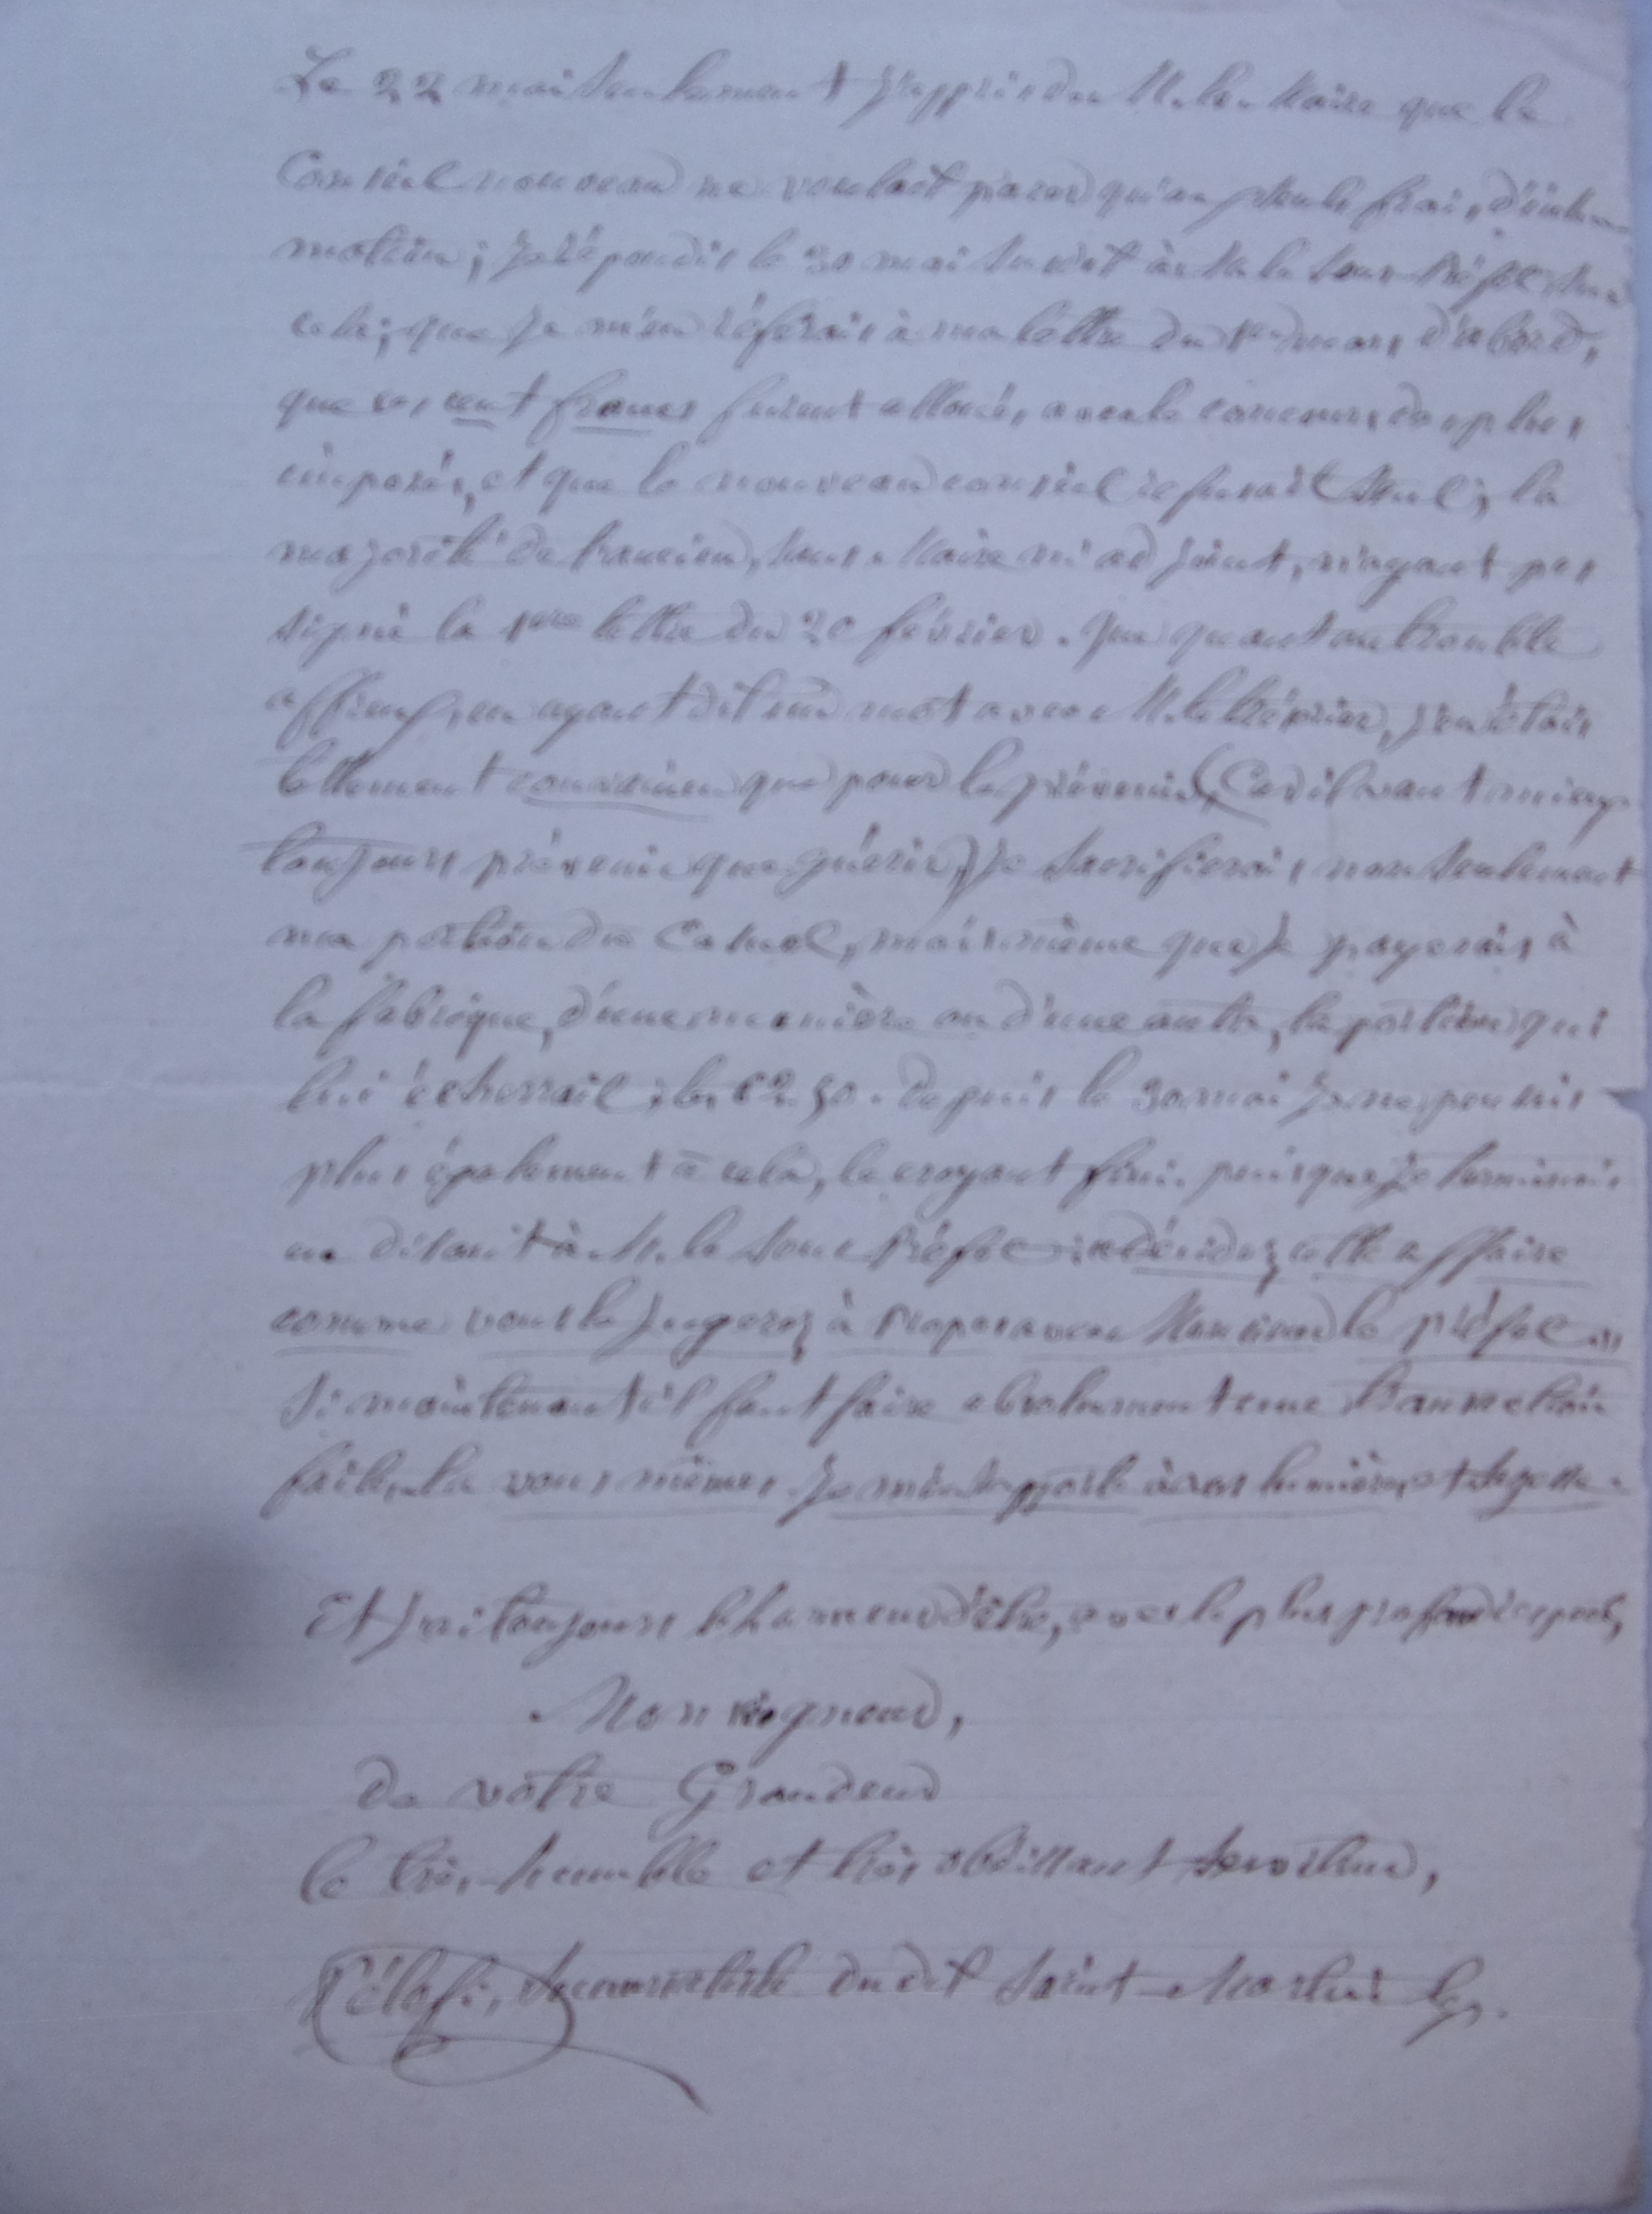 Le 22 mai seulement j'appris de M. le Maire que le
Conseil nouveau ne voulait payer qu'un seul frais d'exhu-
mation; je répondis le 30 mai suivant à M. le Sous-Préfet sur
cela; que je m'en référais à ma lettre du 1er mars d'abord,
que ces cent francs furent alloués avec le concours des plus
imposés, et que le nouveau conseil refusait seul; la
majorité de l'ancien, sans Maire ni adjoint, n'ayant pas
signé la 1ere lettre du 20 février. Que quant au trouble
affreux, en ayant dit un mot avec M. le trésorier, j'en étais
tellement convaincu que pour le prévenir (Car il vaut mieux
toujours prévenir que guérir,) je sacrifierais non seulement
ma portion du Casuel, mais même que je payerais à
la fabrique, d'une manière ou d'une autre, la portion qui
lui écherrait, les 62.50. Depuis le 30 mai je ne pensais
plus également à cela, le croyant fini, puisque je terminais
en disant à M. le Sous Préfet: décidez cette affaire
comme vous le jugerez à propos avec Monsieur le préfet.
Si maintenant il faut faire absolument une transaction
faites-la vous mêmes. Je m'en rapporte à vos lumières et sagesse.
Et j'ai toujours l'honneur d'être, avec le plus profond respect,
Monseigneur,
de votre Grandeur
le très-humble et très obéissant serviteur,
du dit Saint-Martin